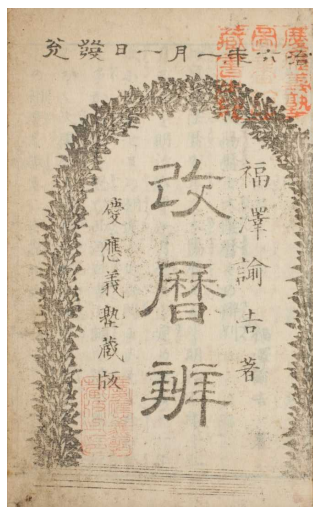 治六年一月一日發兌
福澤諭吉著
改暦辨
慶應義塾藏版